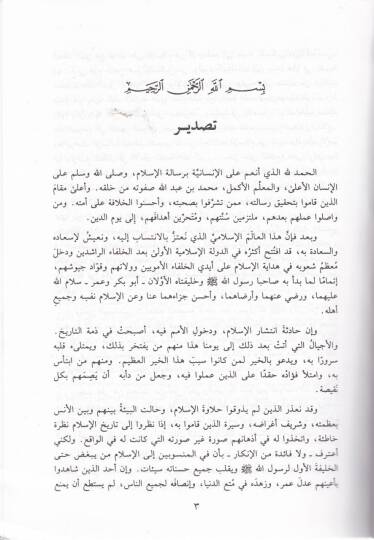 بِسْمِ اللَّهِ الرَّحْمَنِ الرَّحِيمِ
تصديـر
الحمد لله الذي أنعم على الإنسانيَّة برسالة الإسلام، وصلى الله وسلم على
الإنسان الأعلى، والمعلِّم الأكمل، محمد بن عبد الله صفوته من خلقه. وأعلىٰ مقامَ
الذين قاموا بتحقيق رسالته، ممن تشرَّفوا بصحبته، وأحسنوا الخلافة على أمته. ومن
واصلوا عملهم بعدهم، ملتزمين سُنَّتهم، ومُتَحرِّين أهدافهم، إلى يوم الدين.
وبعد فإنَّ هذا العالَمَ الإسلاميَّ الذي نعتزُّ بالانتساب إليه، ونعيشُ لإسعاده
والسعادة به، قد افتُتِح أكثرُه في الدولة الإسلامية الأولىٰ بعد الخلفاء الراشدين ودخلَ
معظمُ شعوبه في هداية الإسلام على أيدي الخلفاء الأمويين وولاتهم وقوَّاد جيوشهم،
إتمامًا لما بدأ به صاحبا رسول الله ﷺ وخليفتاه الأوَّلان ـ أبو بكر وعمر ـ سلام الله
عليهما، ورضي عنهما وأرضاهما، وأحسن جزاءهما عنا وعن الإسلام نفسِه وجميعِ
أهله.
وإن حادثةَ انتشار الإسلام، ودخولِ الأمم فيه، أصبحتْ في ذمة التاريخ.
والأجيالُ التي أتتْ بعد ذلك إلى يومنا هذا منهم من يفتخر بذلك، ويمتلىء قلبه
سرورًا به، ويدعو بالخير لمن كانوا سببَ هذا الخير العظيم. ومنهم من ابتأس
به، وامتلأ فؤادُه حقدًا على الذين عملوا فيه، وجعل من دأبه أن يَصِمَهم بكل
نقيصة.
وقد نعذر الذين لم يذوقوا حلاوةَ الإسلام، وحالت البيئةُ بينهم وبين الأنس
بعظمته، وشريف أغراضه، وسيرة الذين قاموا به، إذا نظروا إلى تاريخ الإسلام نظرة
خاطئة، واتخذوا له في أذهانهم صورة غير صورته التي كانت له في الواقع. ولكني
أعترف ـ ولا فائدة من الإنكار ـ بأن في المنتسبين إلى الإسلام من يبغض حتى
الخليفةَ الأول لرسول الله ﷺ ويقلب جميع حسناته سيئات. وإن أحد الذين شاهدوا
بأعينهم عدلَ عمر، وزهدَه في مُتع الدنيا، وإنصافَه لجميع الناس، لم يستطع أن يمنع
٣